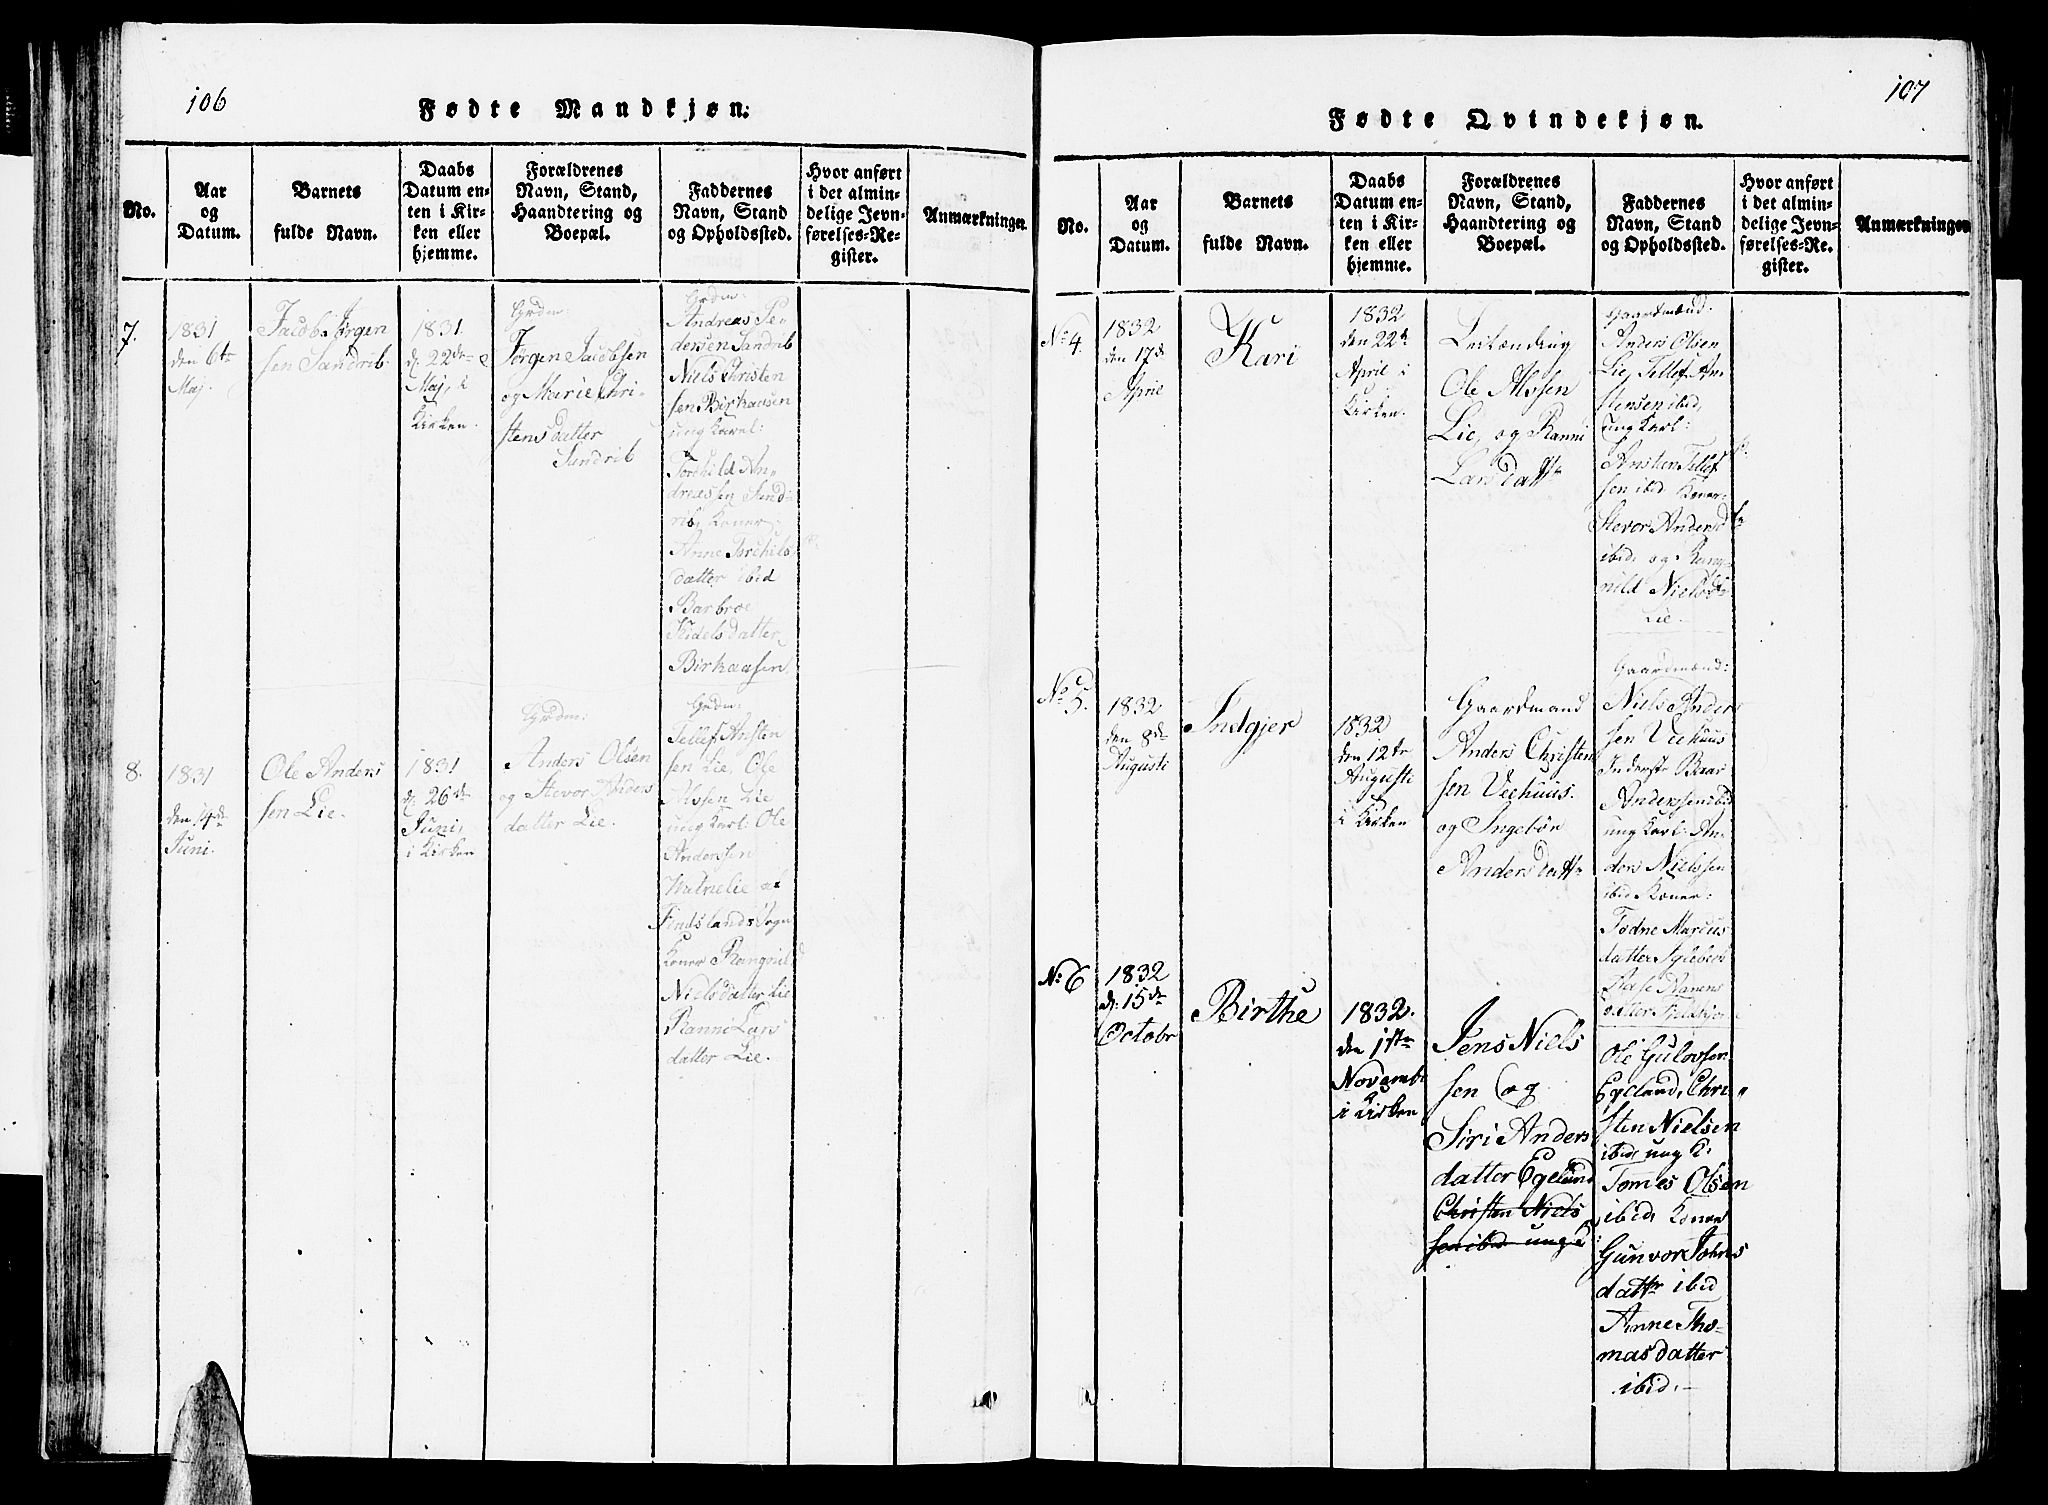 106
Fødte Mandkjøn:
No.
Aar
og
Datum.
Barnets
fulde Navn.
Daabs
Datum en-
ten i Kir-
ken eller
hjemme.
Forældrenes
Navn, Stand,
Haandtering og
Boepæl.
Faddernes
Navn, Stand
og Opholdssted.
Hvor anført
i det almin-
delige Jevn-
førelses-Re-
gister.
Anmærkninger.
7.
1831
den 6te
Maj.
Jacob Jørgen
sen Sandrib
1831.
d. 22de
Maj, i
Kirken.
Grdm:
Jørgen Jacobsen
og Marie Chri-
stensdatter
Sandrib
Grdm:
Andreas Pe-
dersen Sandrib
Niels Christen
sen Birkaasen
ung Karl:
Torchild An-
dreassen Sand-
rib, Koner
Anne Torchils
datter ibid
Barbroe
Keidelsdatter
Birkaasen
8.
1831
den 14de
Juni.
Ole Anders
sen Lie.
1831
d. 26de
Juni,
i Kirken
Grdm:
Anders Olsen
og Stevor Anders
datter Lie.
Grdm:
Tellef Ansten
sen Lie, Ole
Alssen Lie
ung Karl: Ole
Anderssen
Watnelie af
Findslands Sogn
Koner Rangnild
Nielsdatter Lie
Ranni Lars
datter Lie.
107
Fødte Qvindekjøn.
No.
Aar
og
Datum.
Barnets
fulde Navn.
Daabs
Datum en-
ten i Kir-
ken eller
hjemme.
Forældrenes
Navn, Stand,
Haandtering og
Boepæl.
Faddernes
Navn, Stand
og Opholdssted.
Hvor anført
i det almin-
delige Jevn-
førelses-Re-
gister.
Anmærkninger
No 4.
1832
den 17de
April
Kari
1832
den 22de
April i
Kirken.
Leilænding
Ole Alssen
Lie, og Ranni
Larsdattr
Gaardmænd:
Anders Olsen
Lie, Tellef An
stensen ibid,
ung Karl:
Ansten Tellef
sen ibid Koner:
Stevor Andersd
ibid, og Rang-
nild Nielsd
Lie.
No 5.
1832
den 8de
Augusti
Indgjer
1832
den 12te
Augusti
i Kirken
Gaardmand
Anders Christen
sen Veehuus.
og Ingebør
Andersdattr
Gaardmænd:
Niels Anders
sen Veehuus
Inderste
Anderssen ibid
ung Karl: An-
ders Nielssen
ibid Koner:
Todne Marcus
datter
Aase
datter
No 6
1832
d. 15de
Octobr
Birthe
1832.
den 1ste
Novemb
i Kirken
Jens Niels
sen og
Siri Anders
datter Egeland
Christen Niels
sen ibid ung K
Ole Gulovsen
Egeland, Chri
sten Nielsen
ibid, ung K.
Tomes Olsen
ibid, Koner
Gunvor Johns
dattr ibid
Anne Tho-
masdatter
ibid.